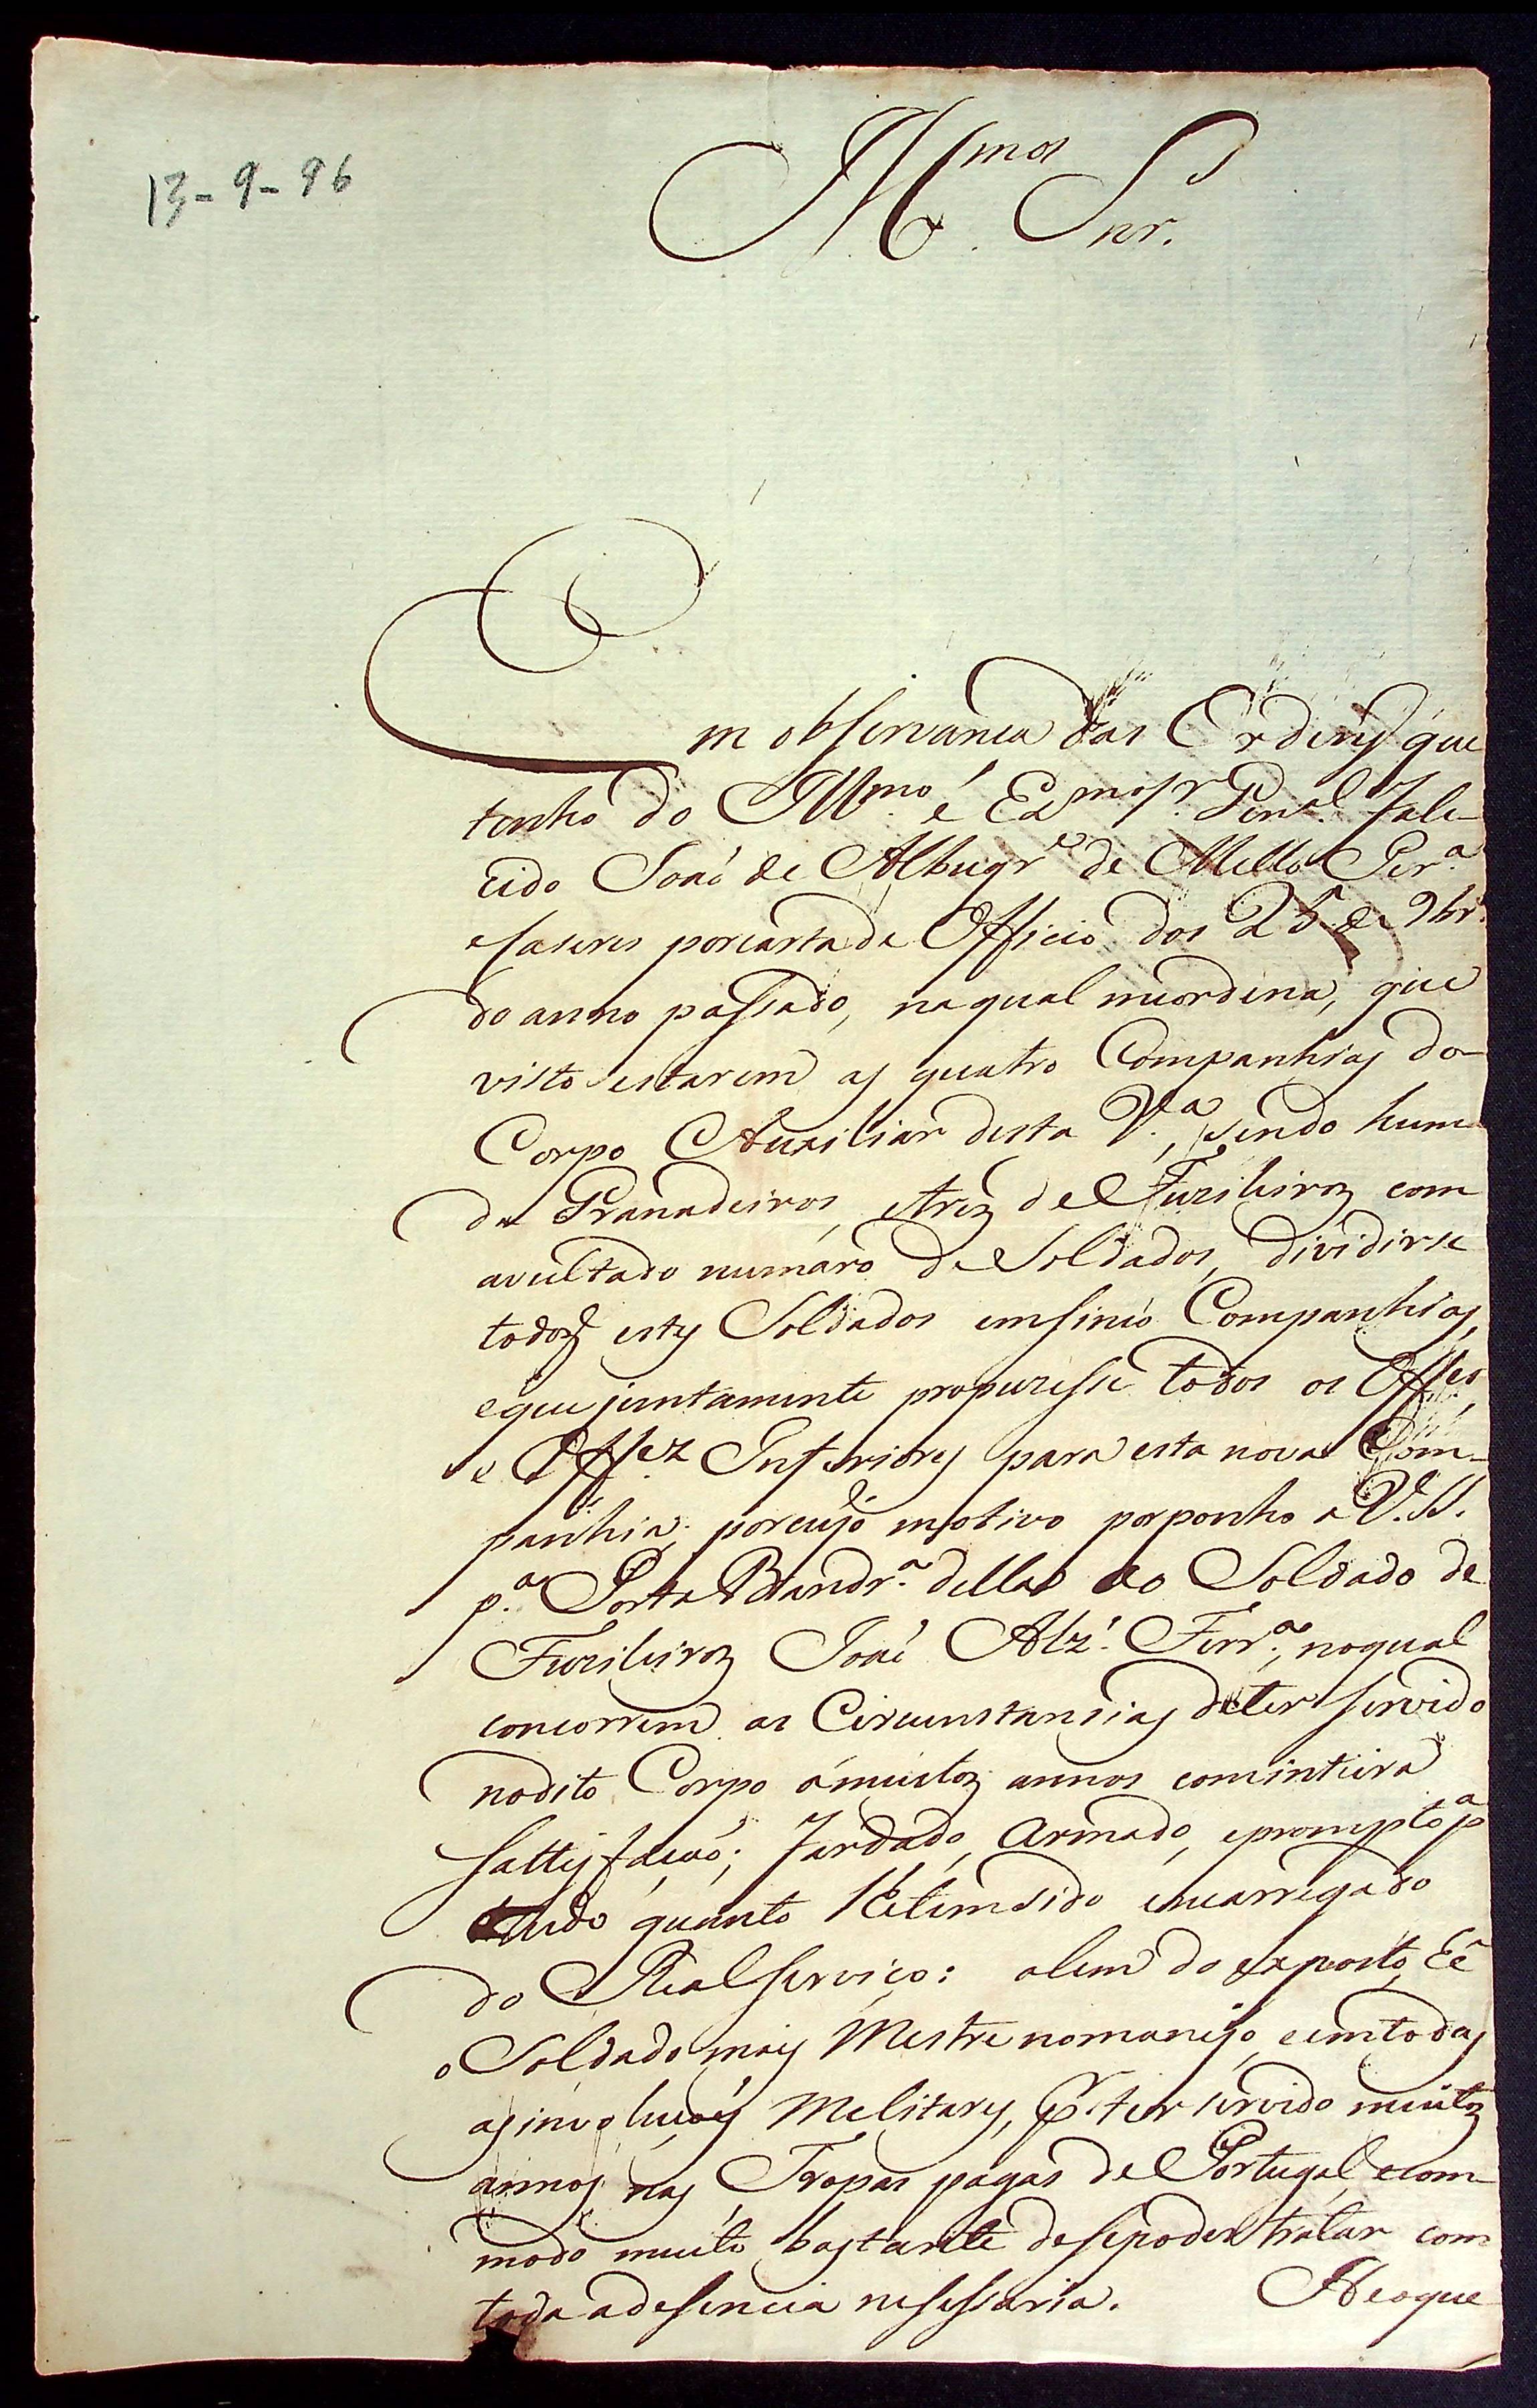 13-9-96
Ill.mos Snr.
Em observancia das Ordens que
tenho do Ill.mo e Ex.mo Sr. Gen.al fale-
cido João de Albuqr.e de Mello Per.a
eCaseres porcarta de Officio dos 25 de 9br.
do anno passado, naqual meordena, que
visto estarem as quatro Companhias do
Corpo Auxiliar desta V.a, sendo huma
de Granadeiros, etrez de Fuzileiroz com
avultado numaro de Soldados, dividirse
todos estes Soldados emsinco Companhias,
eque juntamente propuzesse todos os Off.es,
e Off.ez Inferiores para esta nova Com-
panhia; porcujo motivo porponho a V.S.
p.a Porta Bandr.a della ao Soldado de
Fuzileiroz João Alz.' Ferr.a, noqual
concorrem as Circunstansias deter servido
nodito Corpo ámuitoz annos cominteira
Sattisfacaó; fardado, armado, eprompto p.a
tudo quanto hétemsido encarregado
do Real serviço: alem do exposto, hé
o Soldado mais Mestre nomanejo, eemtodas
asinvoluçoés Melitares, p.r ter servido muitoz
annos nas Tropas pagas de Portugal, ecom-
modo muito bastante desepoder tratar com
toda adesencia nesessaria. Heoque